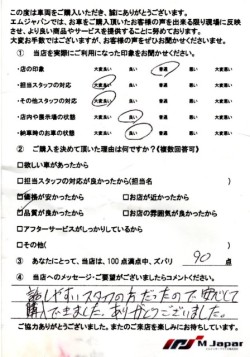 この度は車両をご購入いただき、誠にありがとうございます。
エムジャパンでは、お車をご購入頂いたお客様の声を出来る限り現場に反映
させ、より良い商品やサービスを提供することに努めております。
大変お手数ではございますが、お客様の声をぜひお聞かせくださいませ。
① 当店を実際にご利用になった印象をお聞かせください。
・店の印象 大変良い 良い 普通 悪い 大変悪い
・担当スタッフの対応 大変良い 良い 普通 悪い 大変悪い
・その他スタッフの対応 大変良い 良い 普通 悪い 大変悪い
・店内や展示場の状態 大変良い 良い 普通 悪い 大変悪い
・納車時のお車の状態 大変良い 良い 普通 悪い 大変悪い
② ご購入を決めて頂いた理由は何ですか?《複数回答可》
□欲しい車があったから
□担当スタッフの対応が良かったから(担当名 )
□価格が安かったから □お店が近かったから
□品質が良かったから □お店の雰囲気が良かったから
□アフターサービスがしっかりしているから
□その他( )
③ あなたにとって、当店は、100点満点中、ズバリ 90 点
④ 当店へのメッセージ・ご要望がございましたらコメントください。
話しやすいスタッフの方だったので安心して
購入できました。ありがとうございました。
ご協力ありがとうございました。またのご来店を楽しみにお待ちしています。
M Japan